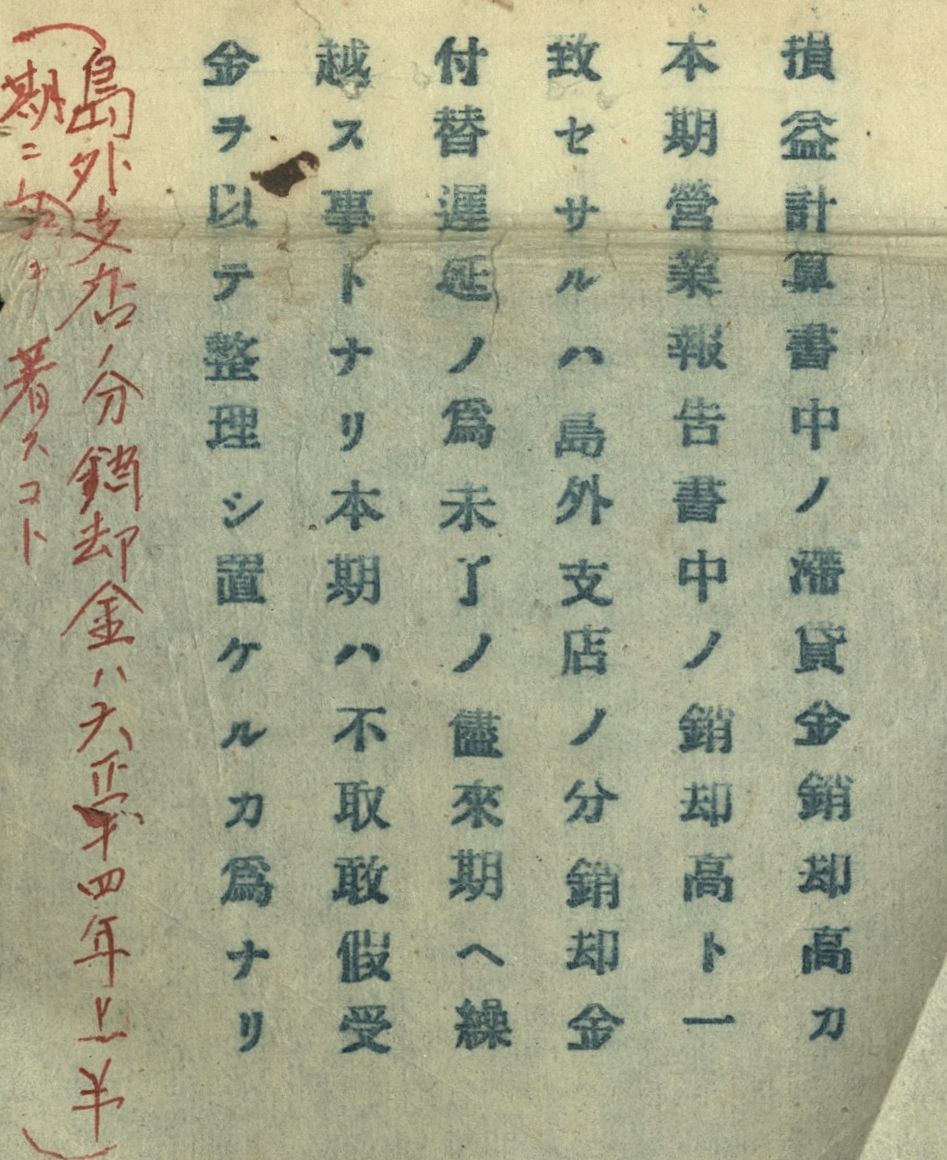 損益計算書中ノ滯貸金銷却高カ
本期營業報告書中ノ銷却高ト一
致セサルハ島外支店ノ分銷却金
付替遲延ノ爲未了ノ儘來期ヘ繰
越ス事トナリ本期ハ不取敢假受
金ヲ以テ整理シ置ケルカ爲ナリ
(島外支店ノ分銷却金ハ大正十四年上半
期ニ 著スコト)